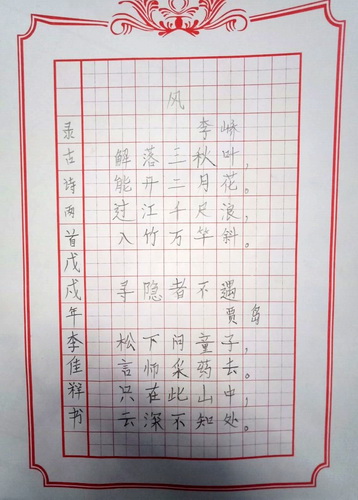 风
李峤
解落二秋叶，
能开二月花。
过江千尺浪，
入竹万竿斜。
寻隐者不遇
贾岛
松下问童子，
言师采药去。
只在此山中，
云深不知处。
录古诗两首戊戌年李佳祥书